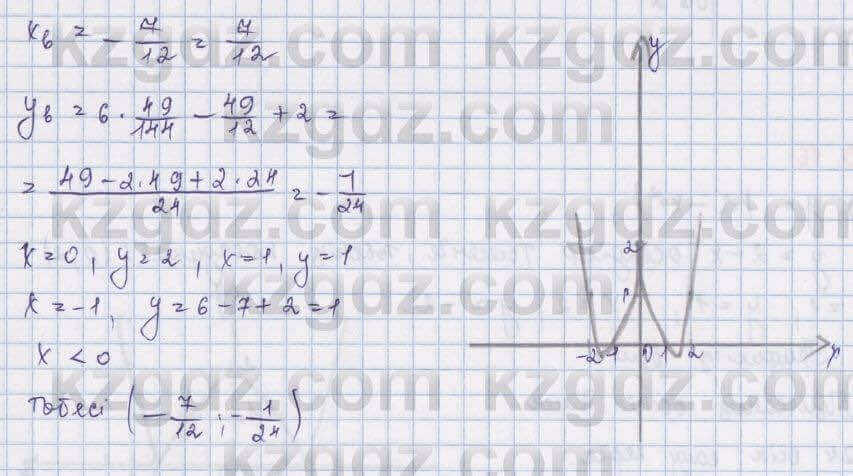 xв = - 7/12 = 7/12
yв = 6 · 49/144 - 49/12 + 2 =
= (49 - 2·49 + 2·24)/24 = - 1/24
x = 0, y = 2, x = 1, y = 1
x = -1, y = 6 - 7 + 2 = 1
x < 0
Төбесі (- 7/12 ; - 1/24)
y
2
1
-2 -1 0 1 2 x
kzgdz.com
kzgdz.com
kzgdz.com
kzgdz.com
kzgdz.com
kzgdz.com